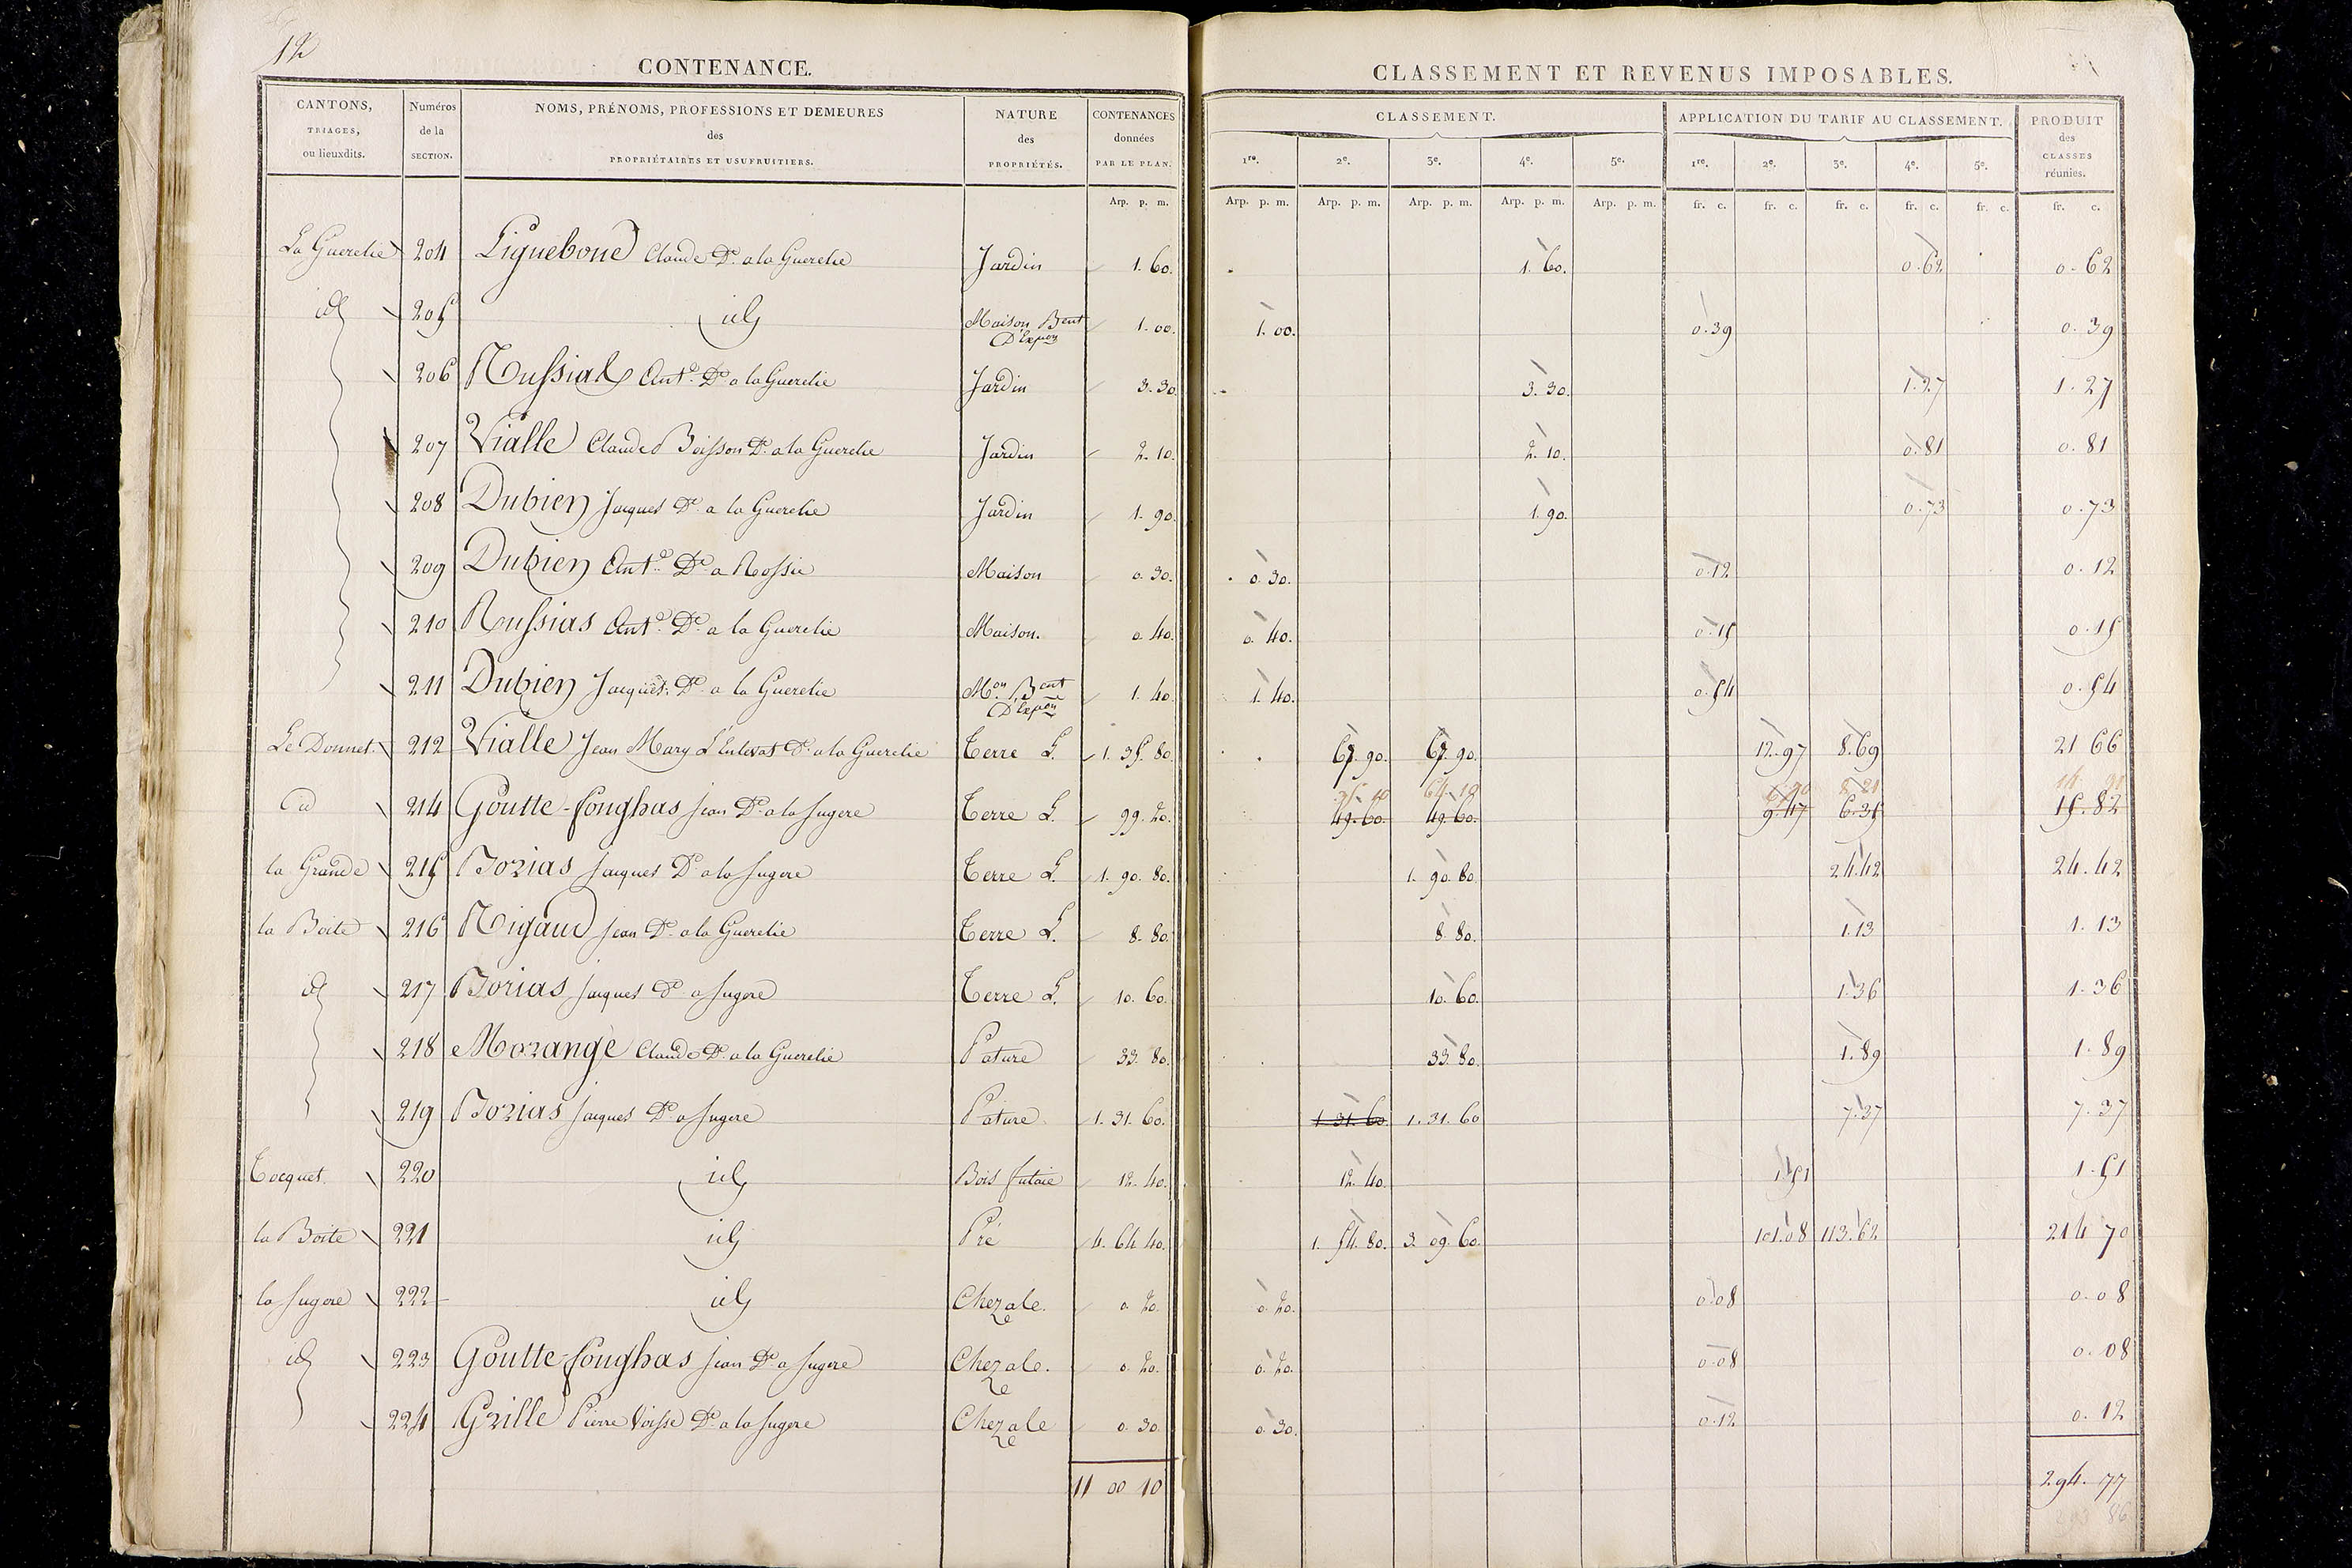 12
CONTENANCE.
CLASSEMENT ET REVENUS IMPOSABLES.
CANTONS, TRIAGES, ou lieuxdits. Numéros de la SECTION. NOMS, PRÉNOMS, PROFESSIONS ET DEMEURES des PROPRIÉTAIRES ET USUFRUITIERS. NATURE des PROPRIÉTÉS. CONTENANCES données PAR LE PLAN. CLASSEMENT. APPLICATION DU TARIF AU CLASSEMENT. PRODUIT des CLASSES réunies.
1re. 2e. 3e. 4e. 5e. 1re. 2e. 3e. 4e. 5e.
Arp. p. m. Arp. p. m. Arp. p. m. Arp. p. m. Arp. p. m. Arp. p. m. fr. c. fr. c. fr. c. fr. c. fr. c. fr. c.
La Guerelie 204 Liguebone Claude De a la Guerelie Jardin 1. 60. 1. 60. 0.62 0.62
id 205 id Maison Bent D'Expon 1. 00. 1. 00. 0.39 0.39
206 Antе De a la Guerelie Jardin 3. 30. 3. 30. 1.27 1.27
207 Vialle Claude Boisson De a la Guerelie Jardin 2. 10. 2. 10. 0.81 0.81
208 Dubien Jacques De a la Guerelie Jardin 1. 90. 1. 90. 0.73 0.73
209 Dubien Ante De a Maison 0. 30. 0. 30. 0.12 0.12
210 Russias Ante De a la Guerelie Maison. 0. 40. 0. 40. 0.15 0.15
211 Dubien Jacques De a la Guerelie Mon Bent D'Expon 1. 40. 1. 40. 0.54 0.54
Le Donnet 212 Vialle Jean Mary De a la Guerelie Terre L. 1. 35. 80. 67. 90. 67. 90. 12.97 8.69 21 66
35. 10 64. 10 8.21
id 214 Goutte-fonghas Jean De a la Sugere Terre L. 99. 20. 49. 60. 49. 60. 9.47 6.35 15.82
la Grande 215 Borias Jacques De a la Sugere Terre L. 1. 90. 80. 1. 90. 80. 24.42 24.42
la Boite 216 Rigaud Jean De a la Guerelie Terre L. 8. 80. 8. 80. 1.13 1.13
id 217 Borias Jacques De a Sugere Terre L. 10. 60. 10. 60. 1.36 1.36
218 Morange Claude De a la Guerelie Pature 33. 80. 33. 80. 1.89 1.89
219 Borias Jacques De a Sugere Pature 1. 31. 60. 1. 31. 60. 1. 31. 60 7.37 7.37
Tocquet. 220 id Bois futaie 12. 40. 12. 40. 1.51 1.51
la Boite 221 id Pré 4. 64. 40. 1. 54. 80. 3. 09. 60. 101.08 113.62 214 70
la Sugere 222 id Chezale. 0. 20. 0. 20. 0.08 0.08
id 223 Goutte-fonghas Jean De a Sugere Chezale. 0. 20. 0. 20. 0.08 0.08
224 Grille Pierre De a la Sugere Chezale 0. 30. 0. 30. 0.12 0.12
11 00 10 294.77